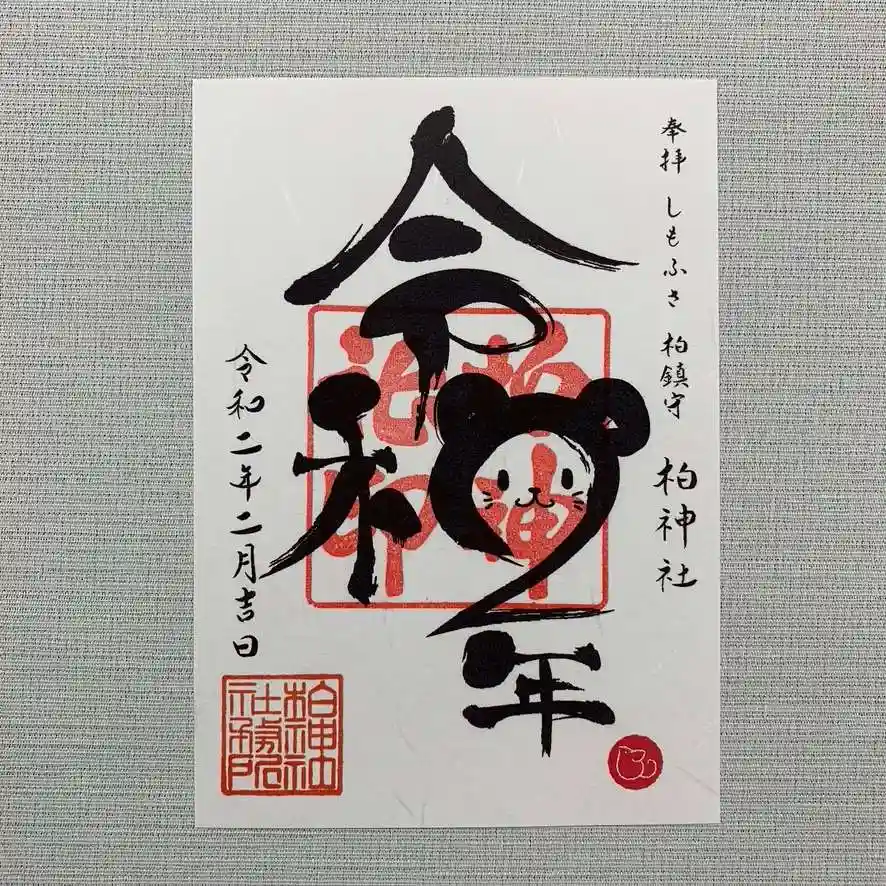 奉拝 しもふさ 柏鎮守 柏神社
令和2年
柏神
社印
令和二年二月吉日
柏神社
社務所